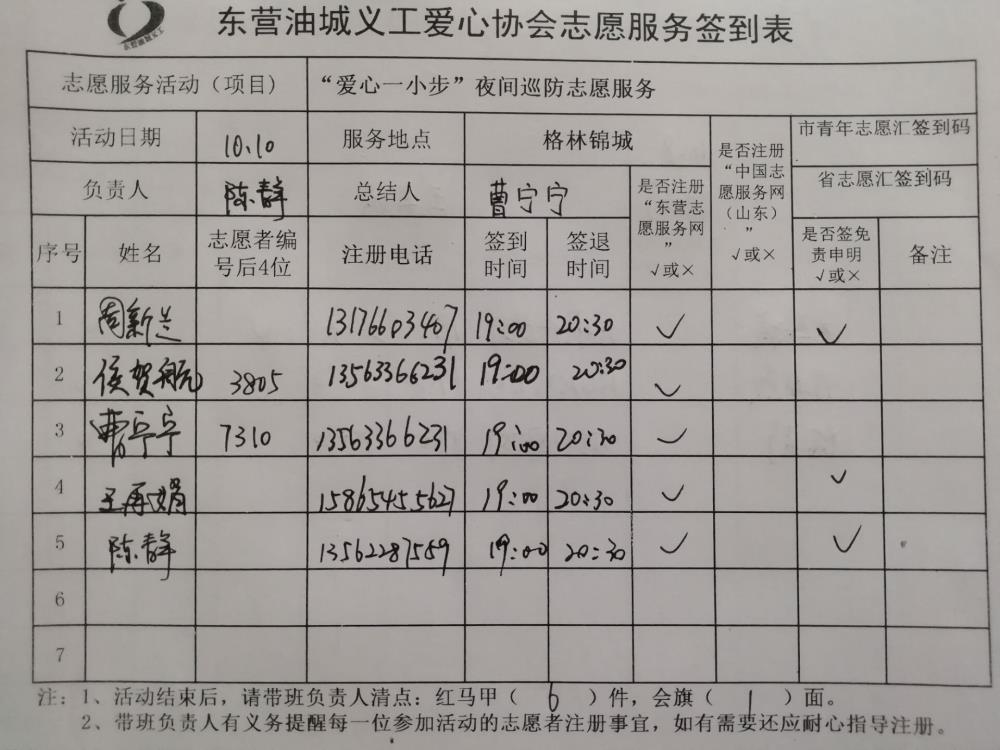 东营油城义工
东营油城义工爱心协会志愿服务签到表
志愿服务活动（项目） “爱心一小步”夜间巡防志愿服务
活动日期 10.10 服务地点 格林锦城 是否注册“中国志愿服务网（山东）” √或× 市青年志愿汇签到码
负责人 陈静 总结人 曹宁宁 是否注册“东营志愿服务网” √或× 省志愿汇签到码
序号 姓名 志愿者编号后4位 注册电话 签到时间 签退时间 是否签免责申明 √或× 备注
1 周新兰 13176603407 19:00 20:30 √ √
2 侯贺航 3805 13563366231 19:00 20:30 √
3 曹宁宁 7310 13563366231 19:00 20:30 √
4 王再娟 15865455627 19:00 20:30 √ √
5 陈静 13562287559 19:00 20:30 √ √
6
7
注：1、活动结束后，请带班负责人清点：红马甲（ 6 ）件，会旗（ 1 ）面。
2、带班负责人有义务提醒每一位参加活动的志愿者注册事宜，如有需要还应耐心指导注册。